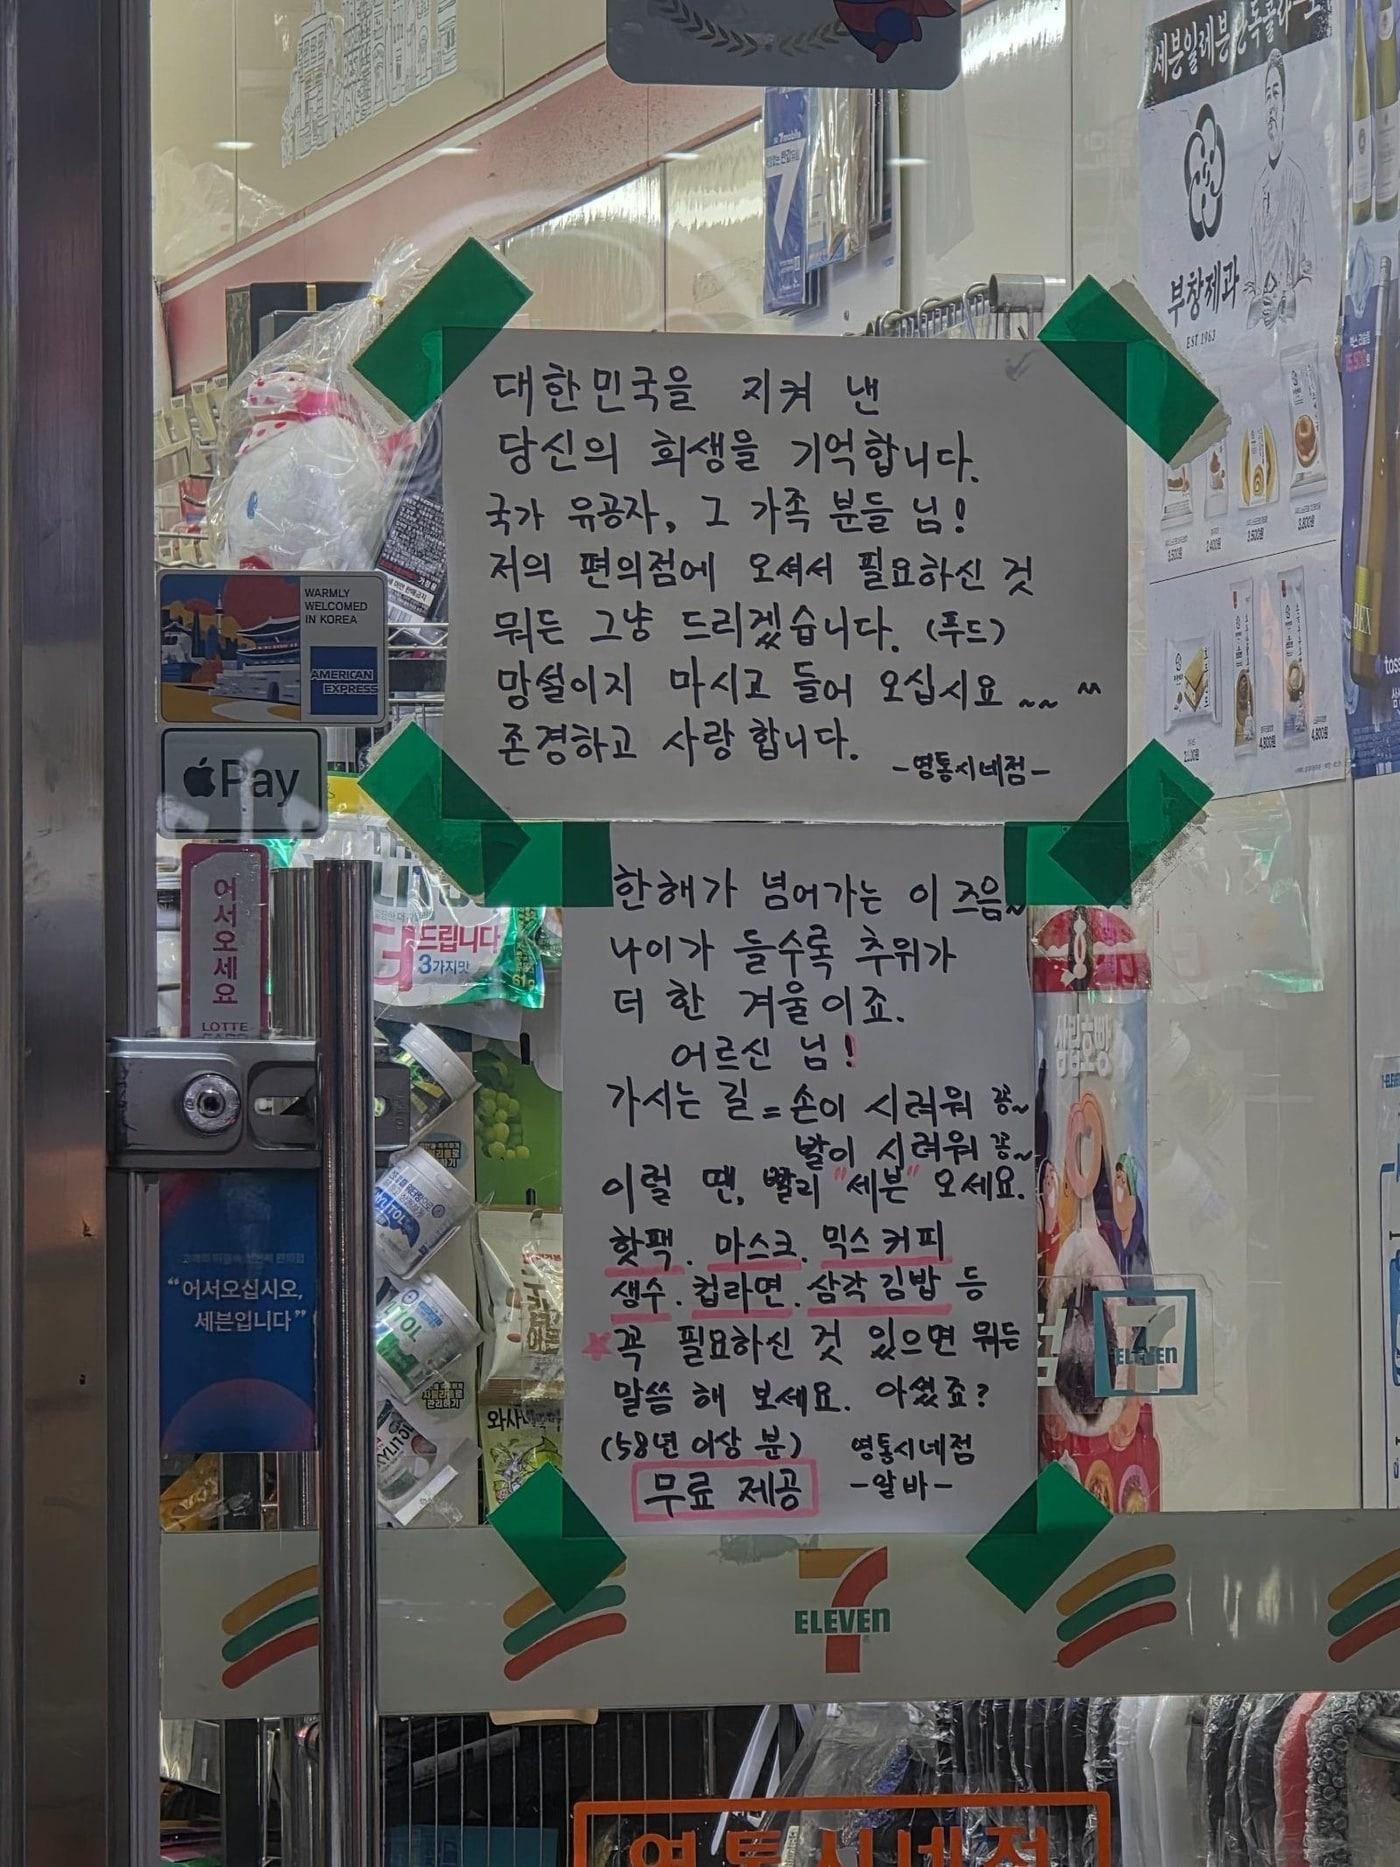 세븐일레븐 단독콜라보
부창제과
EST 1963
7mobile
7
대한민국을 지켜 낸
당신의 희생을 기억합니다.
국가 유공자, 그 가족 분들 님!
저의 편의점에 오셔서 필요하신 것
뭐든 그냥 드리겠습니다. (푸드)
망설이지 마시고 들어 오십시요 ~~ ^^
존경하고 사랑합니다.
-영통시네점-
WARMLY
WELCOMED
IN KOREA
AMERICAN
EXPRESS
Pay
어서오세요
LOTTE
드립니다
3가지맛
한해가 넘어가는 이 즈음~
나이가 들수록 추위가
더 한 겨울이죠.
어르신 님!
가시는 길 = 손이 시려워 꽁~
발이 시려워 꽁~
이럴 땐, 빨리 "세븐" 오세요.
핫팩. 마스크. 믹스커피
생수. 컵라면. 삼각김밥 등
꼭 필요하신 것 있으면 뭐든
말씀 해 보세요. 아셨죠?
(58년 이상 분) 영통시네점
무료 제공 -알바-
삼립호빵
"어서오십시오,
세븐입니다"
7
ELEVEN
7
ELEVEN
영통시네점